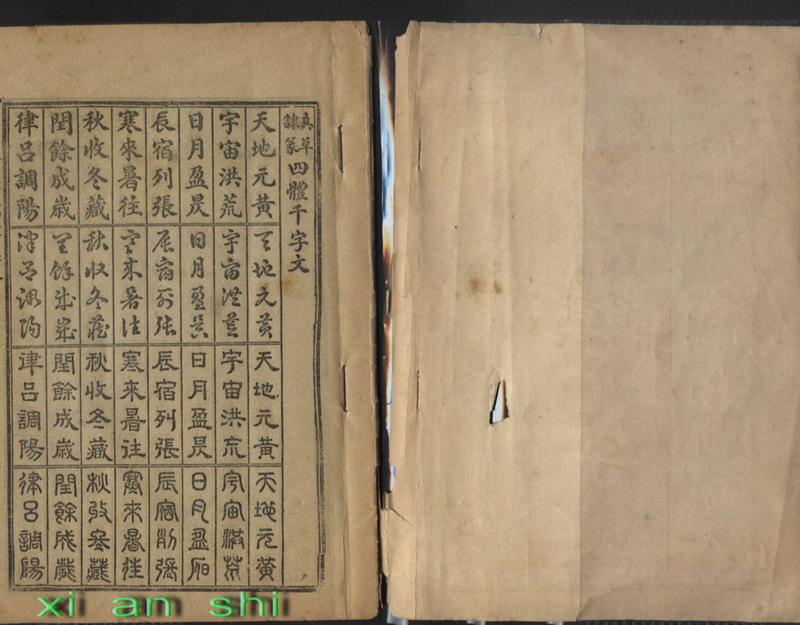 真草隸篆四體千字文
天地元黃 天地元黃 天地元黃 天地元黃
宇宙洪荒 宇宙洪荒 宇宙洪荒 宇宙洪荒
日月盈昃 日月盈昃 日月盈昃 日月盈昃
辰宿列張 辰宿列張 辰宿列張 辰宿列張
寒來暑往 寒來暑往 寒來暑往 寒來暑往
秋收冬藏 秋收冬藏 秋收冬藏 秋收冬藏
閏餘成歲 閏餘成歲 閏餘成歲 閏餘成歲
律呂調陽 律呂調陽 律呂調陽 律呂調陽
xi an shi